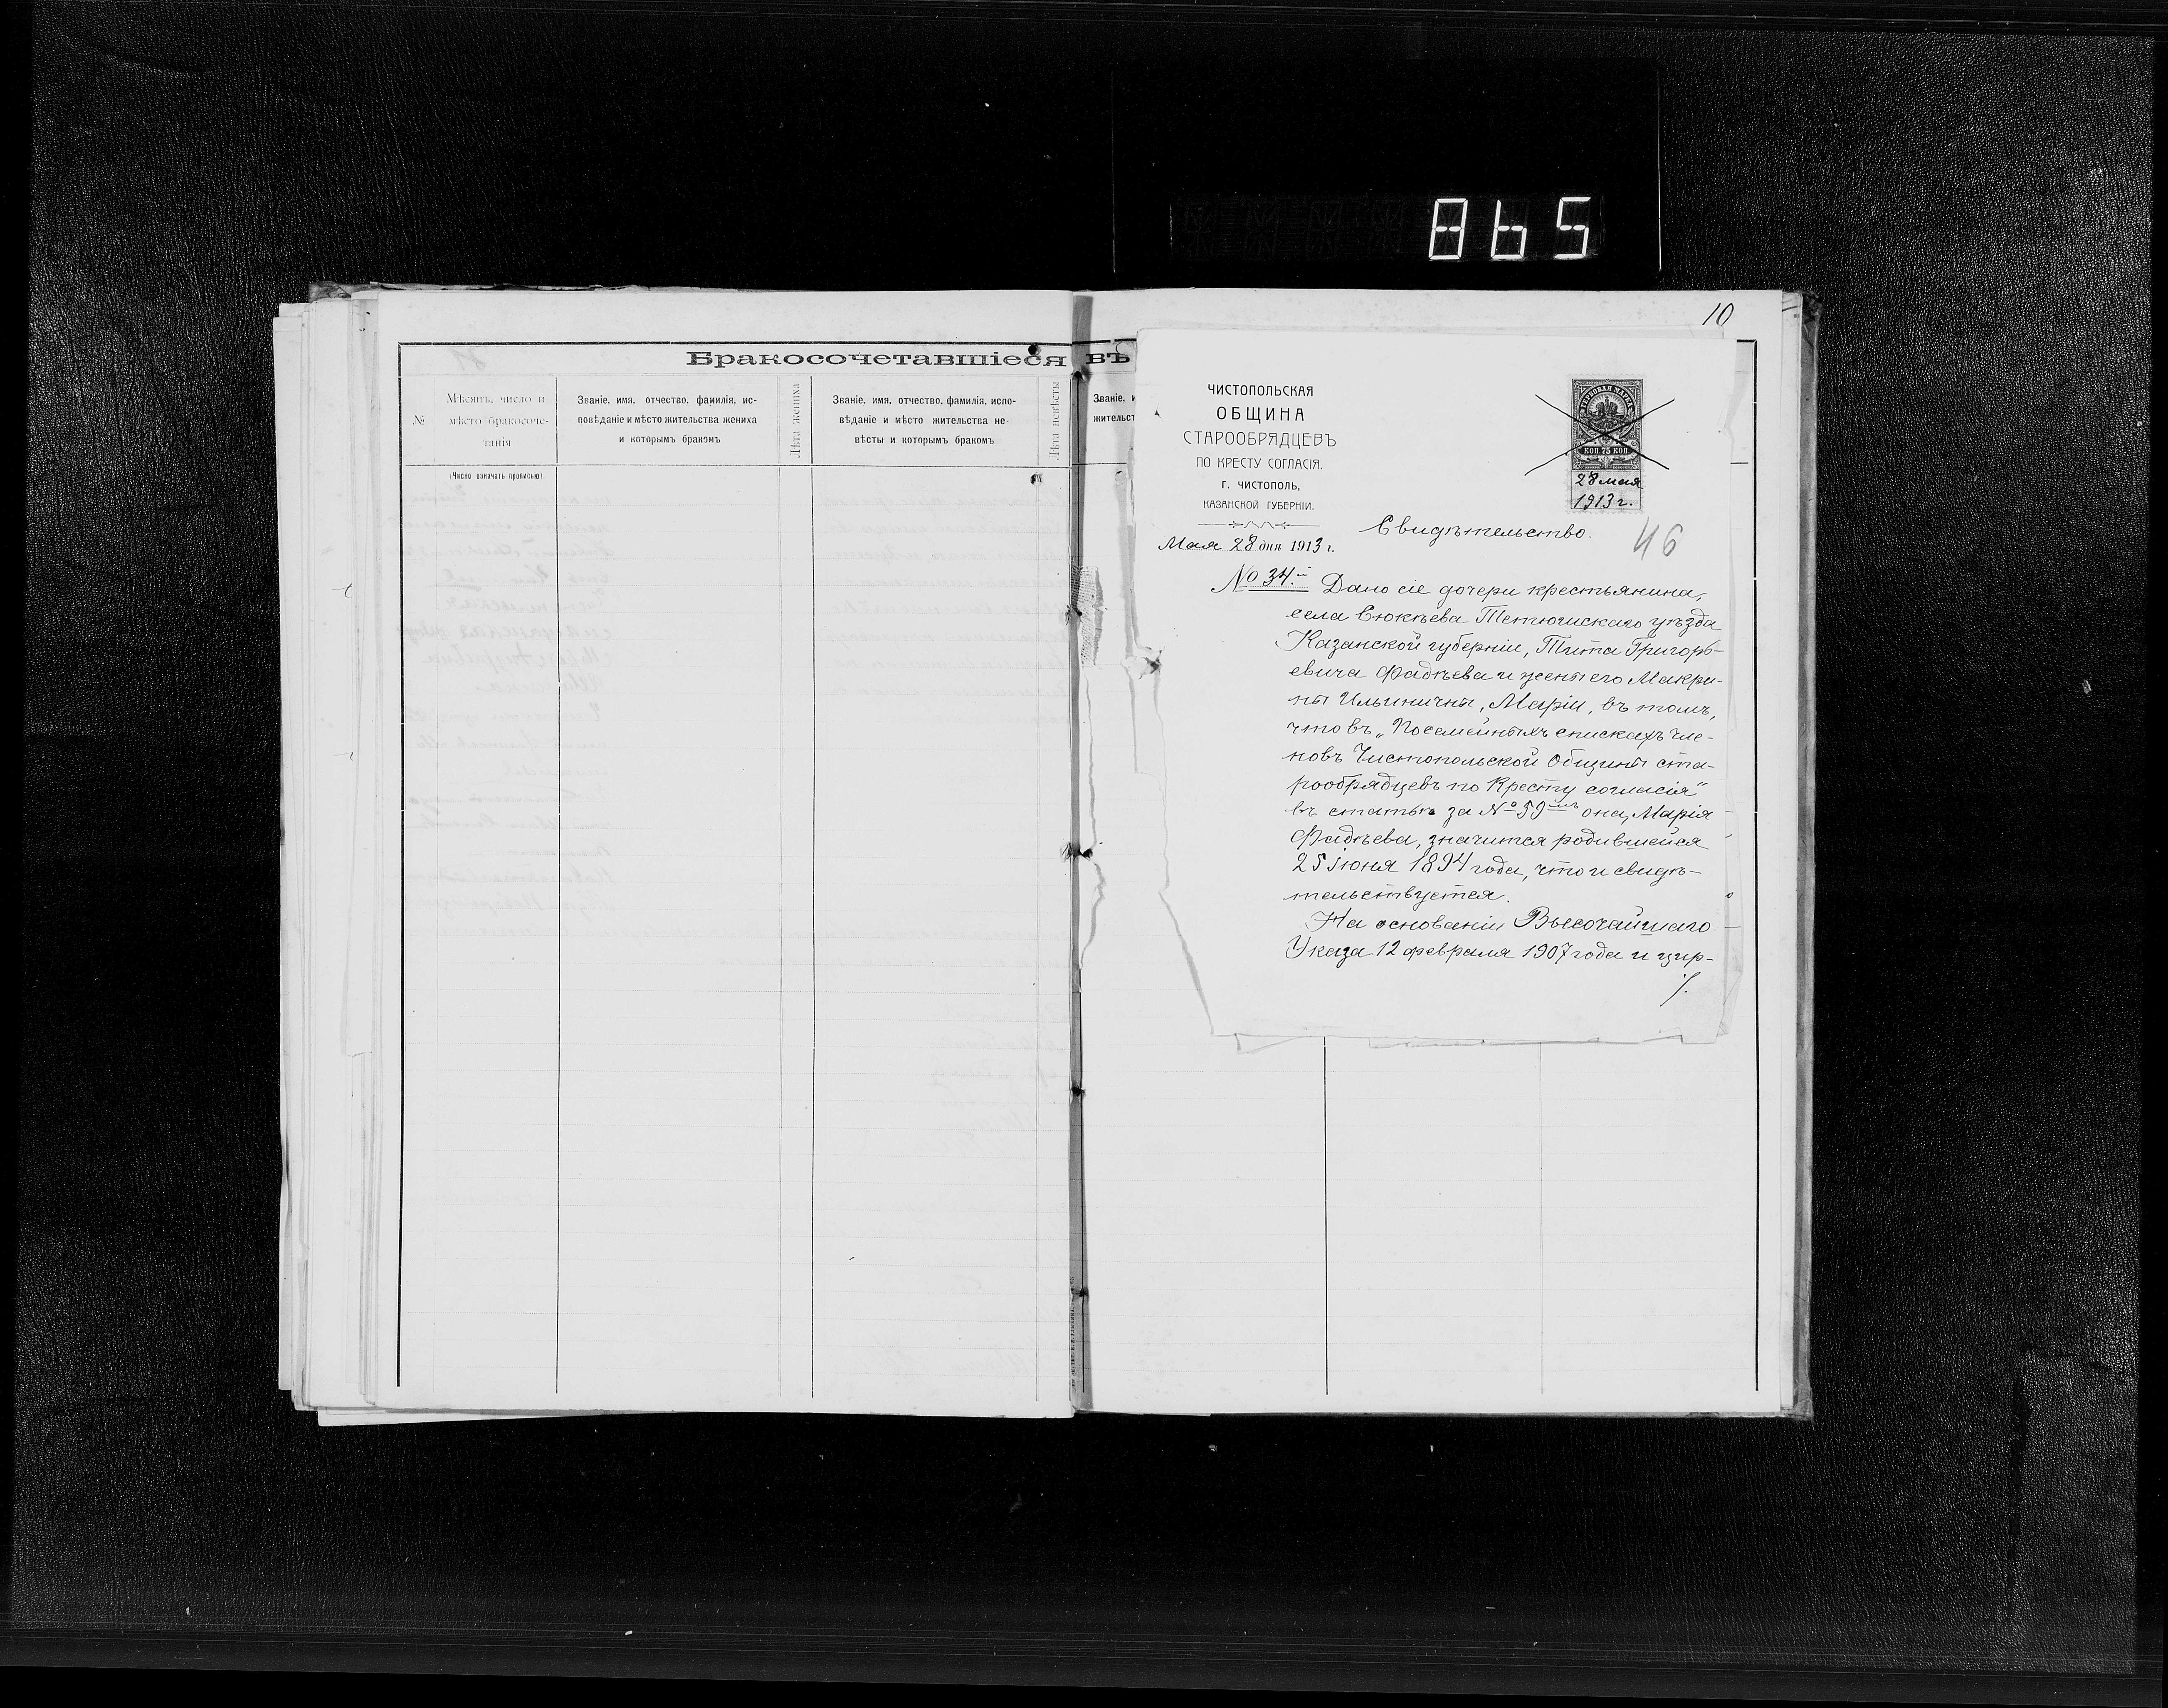 865
10
Бракосочетавшіеся въ
№
Мѣсяцъ, число и
мѣсто бракосоче-
танія
(Число означать прописью)
Званіе, имя, отчество, фамилія, ис-
повѣданіе и мѣсто жительства жениха
и которымъ бракомъ
Лѣта жениха
Званіе, имя, отчество, фамилія, испо-
вѣданіе и мѣсто жительства не-
вѣсты и которымъ бракомъ
Лѣта невѣсты
Званіе, и
жительст
ЧИСТОПОЛЬСКАЯ
ОБЩИНА
СТАРООБРЯДЦЕВЪ
ПО КРЕСТУ СОГЛАСІЯ.
Г. ЧИСТОПОЛЬ,
КАЗАНСКОЙ ГУБЕРНІИ.
Мая 28 дня 1913 г.
№ 34.й
КОП. 75 КОП.
28 мая
1913 г.
Свидѣтельство.
46
Дано сіе дочери крестьянина,
села Сюкѣева Тетюшскаго уѣзда
Казанской губерніи, Тита Григорь-
евича Фадѣева и жены его Макри-
ны Ильиничны, Маріи, въ томъ,
что въ „Посемейныхъ спискахъ чле-
новъ Чистопольской Общины ста-
рообрядцевъ по Кресту согласія"
въ статьѣ за № 59имъ она, Марія
Фадѣева, значится родившейся
25 іюня 1894 года, что и свидѣ-
тельствуется.
На основаніи Высочайшаго
Указа 12 февраля 1907 года и цир-